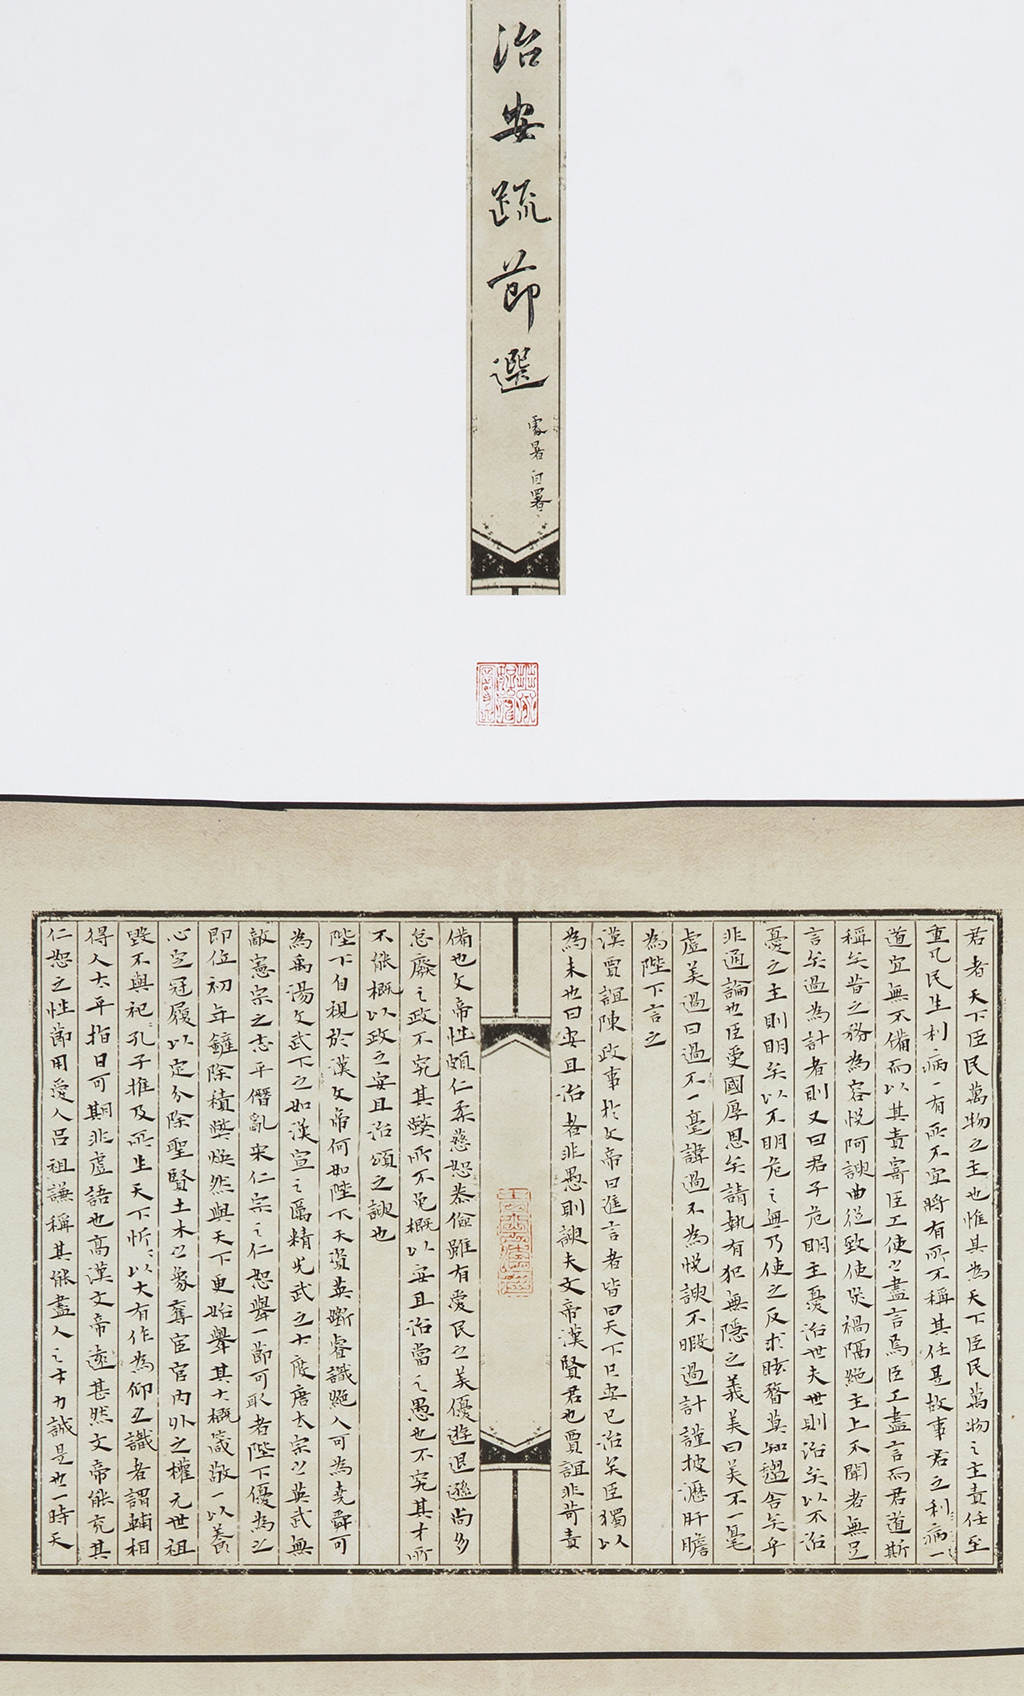 治安疏節選
處暑自署
君者天下臣民萬物之主也惟其為天下臣民萬物之主責任至
重凡民生利病一有所不宜將有所不稱其任是故事君之利病一
道宜無不備而以其責寄臣工使之盡言焉臣工盡言而君道斯
稱矣昔之務為容悅阿諛曲從致使災禍隔絕主上不聞者無足
言矣過為計者則又曰君子危明主憂治世夫世則治矣以不治
憂之主則明矣以不明危之無乃使之反求眩瞀莫知趨舍矣乎
非通論也臣受國厚恩矣請執有犯無隱之義美曰美不一毫
虛美過曰過不一毫諱過不為悅諛不暇過計謹披瀝肝膽
為陛下言之
漢賈誼陳政事於文帝曰進言者皆曰天下已安已治矣臣獨以
為未也曰安且治者非愚則諛夫文帝漢賢君也賈誼非苛責
備也文帝性頗仁柔慈恕恭儉雖有愛民之美優遊退遜尚多
怠廢之政不究其獘所不免概以安且治當之愚也不究其才所
不能概以政之安且治頌之諛也
陛下自視於漢文帝何如陛下天資英斷睿識絕人可為堯舜可
為禹湯文武下之如漢宣之厲精光武之大度唐太宗之英武無
敵憲宗之志平僭亂宋仁宗之仁恕舉一節可取者陛下優為之
即位初年鏟除積獘煥然與天下更始舉其大概箴敬一以養
心定冠履以定分除聖賢土木之象奪宦官內外之權元世祖
毀不與祀孔子推及所生天下忻忻以大有作為仰之識者謂輔相
得人太平指日可期非虛語也高漢文帝遠甚然文帝能充其
仁恕之性節用愛人呂祖謙稱其能盡人之才力誠是也一時天